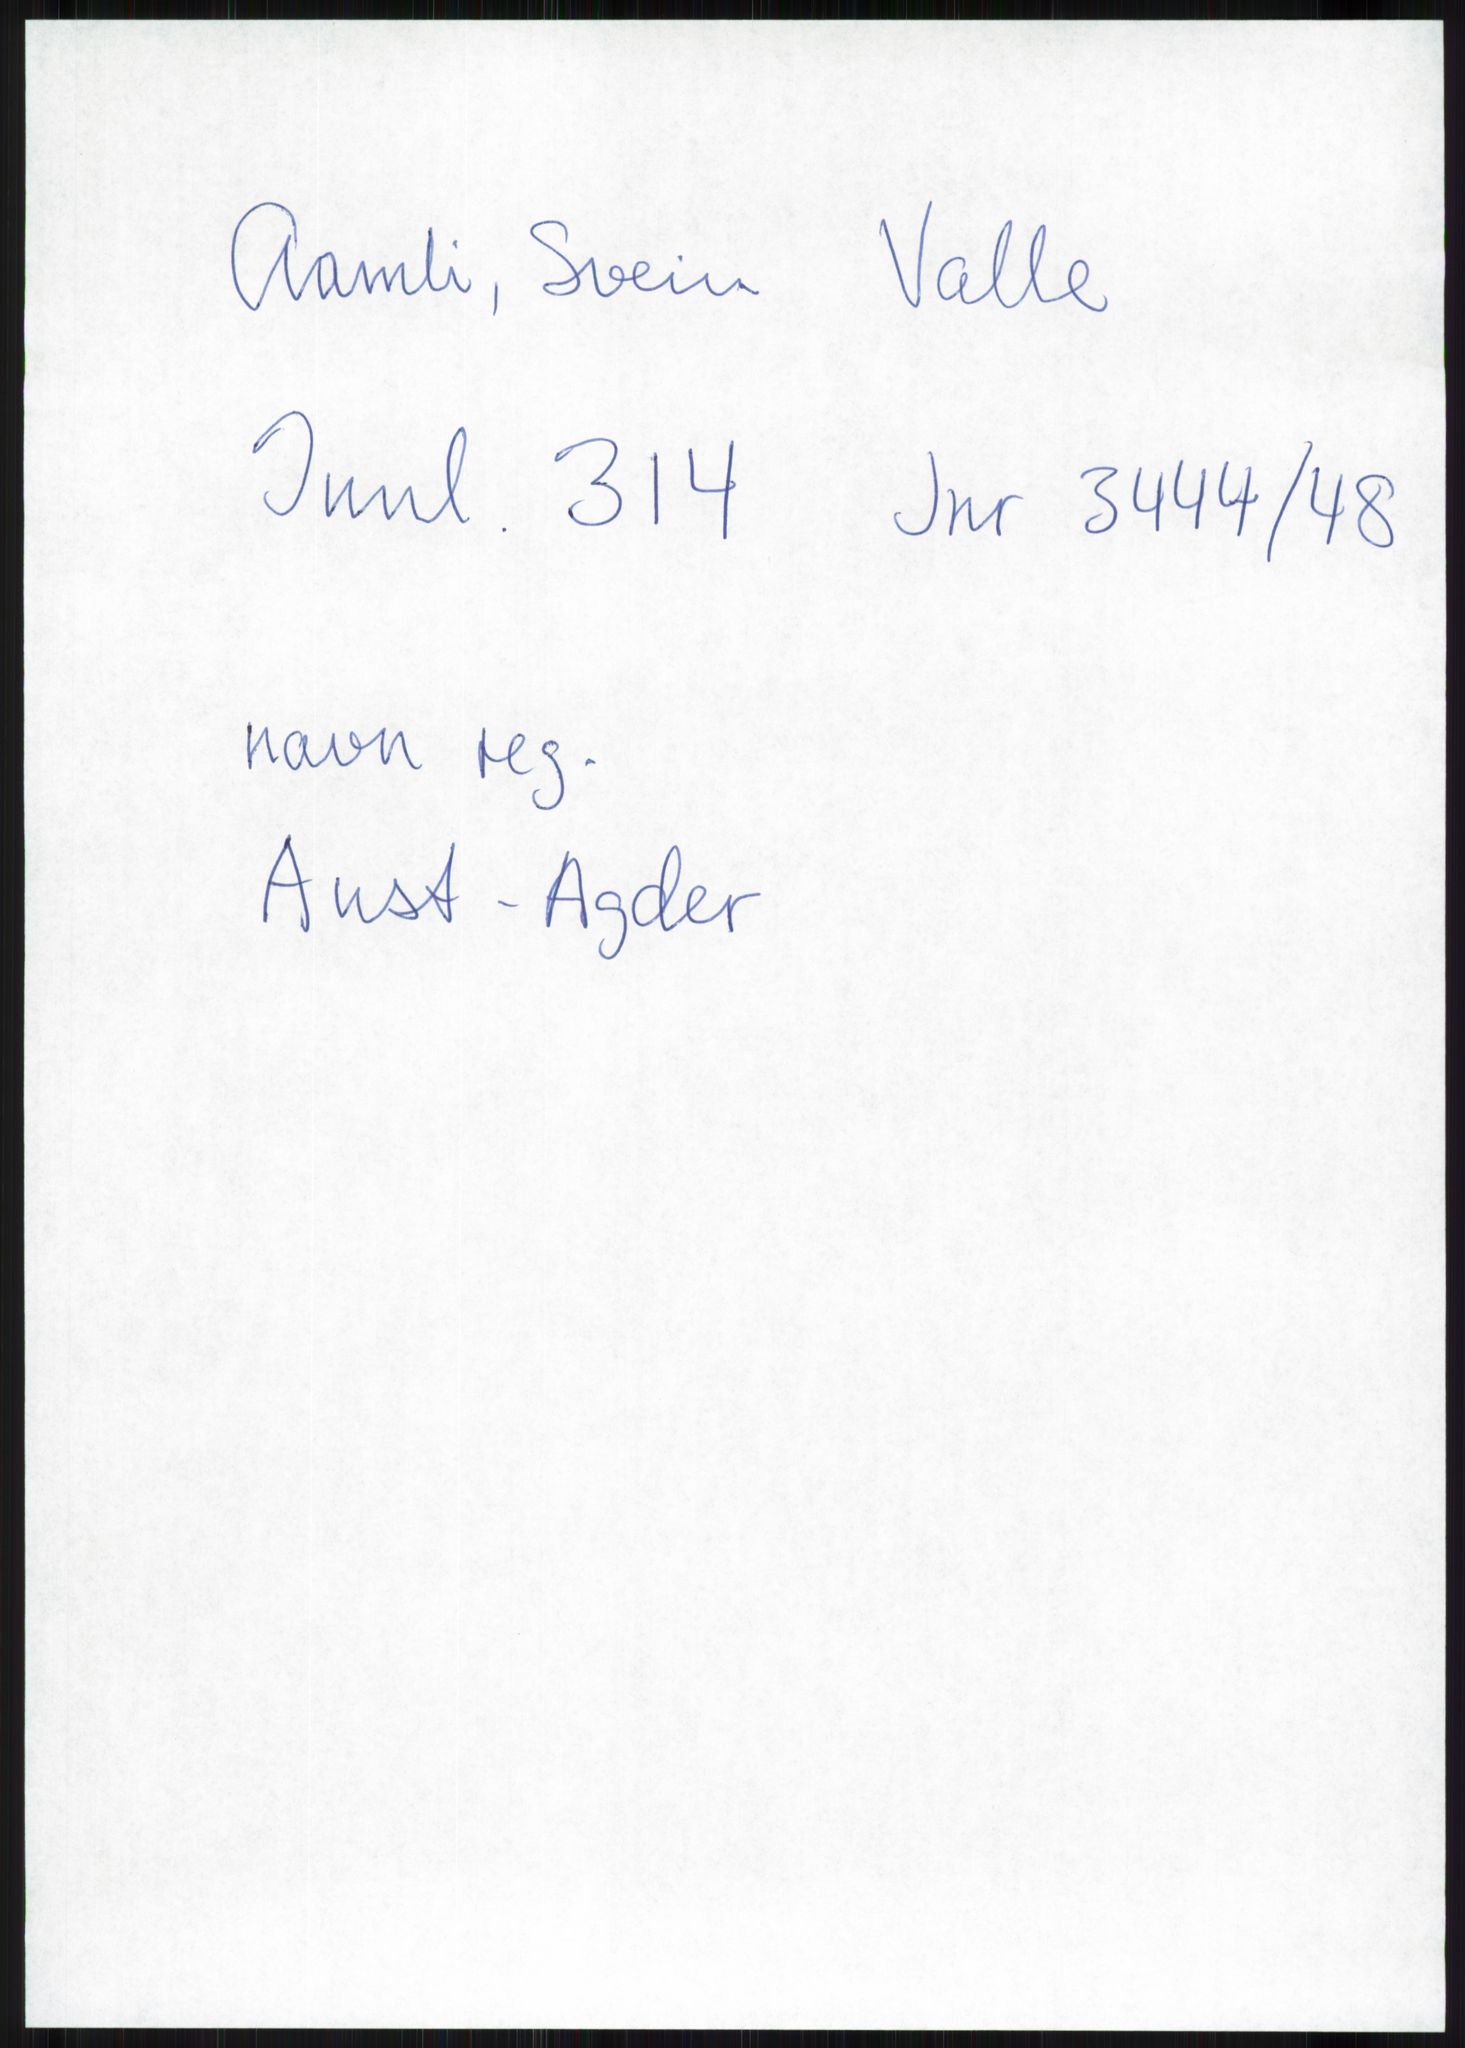 Aamli, Svein Valle
Innl. 314 Jnr 3444/48
navn reg.
Aust-Agder